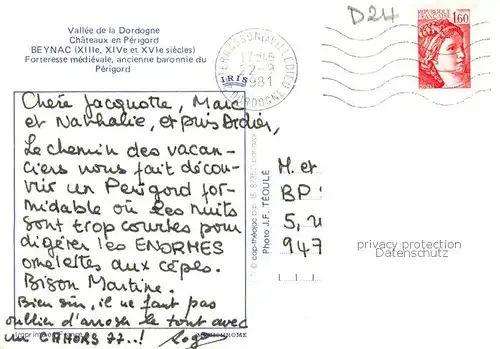 Vallée de la Dordogne
Châteaux en Périgord
BEYNAC (XIIIe, XIVe et XVIe siècles)
Forteresse médiévale, ancienne baronnie du
Périgord
D24
REPUBLIQUE FRANCAISE
1,60
22-9
1981
DORDOGNE
Chère Jacquotte, Marc
et Nathalie, et puis Didier,
Le chemin des vacan-
ciers nous fait décou-
vrir un Périgord for-
midable où les nuits
sont trop courtes pour
digérer les ENORMES
omelettes aux cèpes.
Bison Martine.
Bien sûr, il ne faut pas
oublier d'arroser le tout avec
un CAHORS 77..!
M. et
BP
5,
947
IRIS
Photo J.F. TÉOULÉ
privacy protection
Datenschutz
Imprimé en France